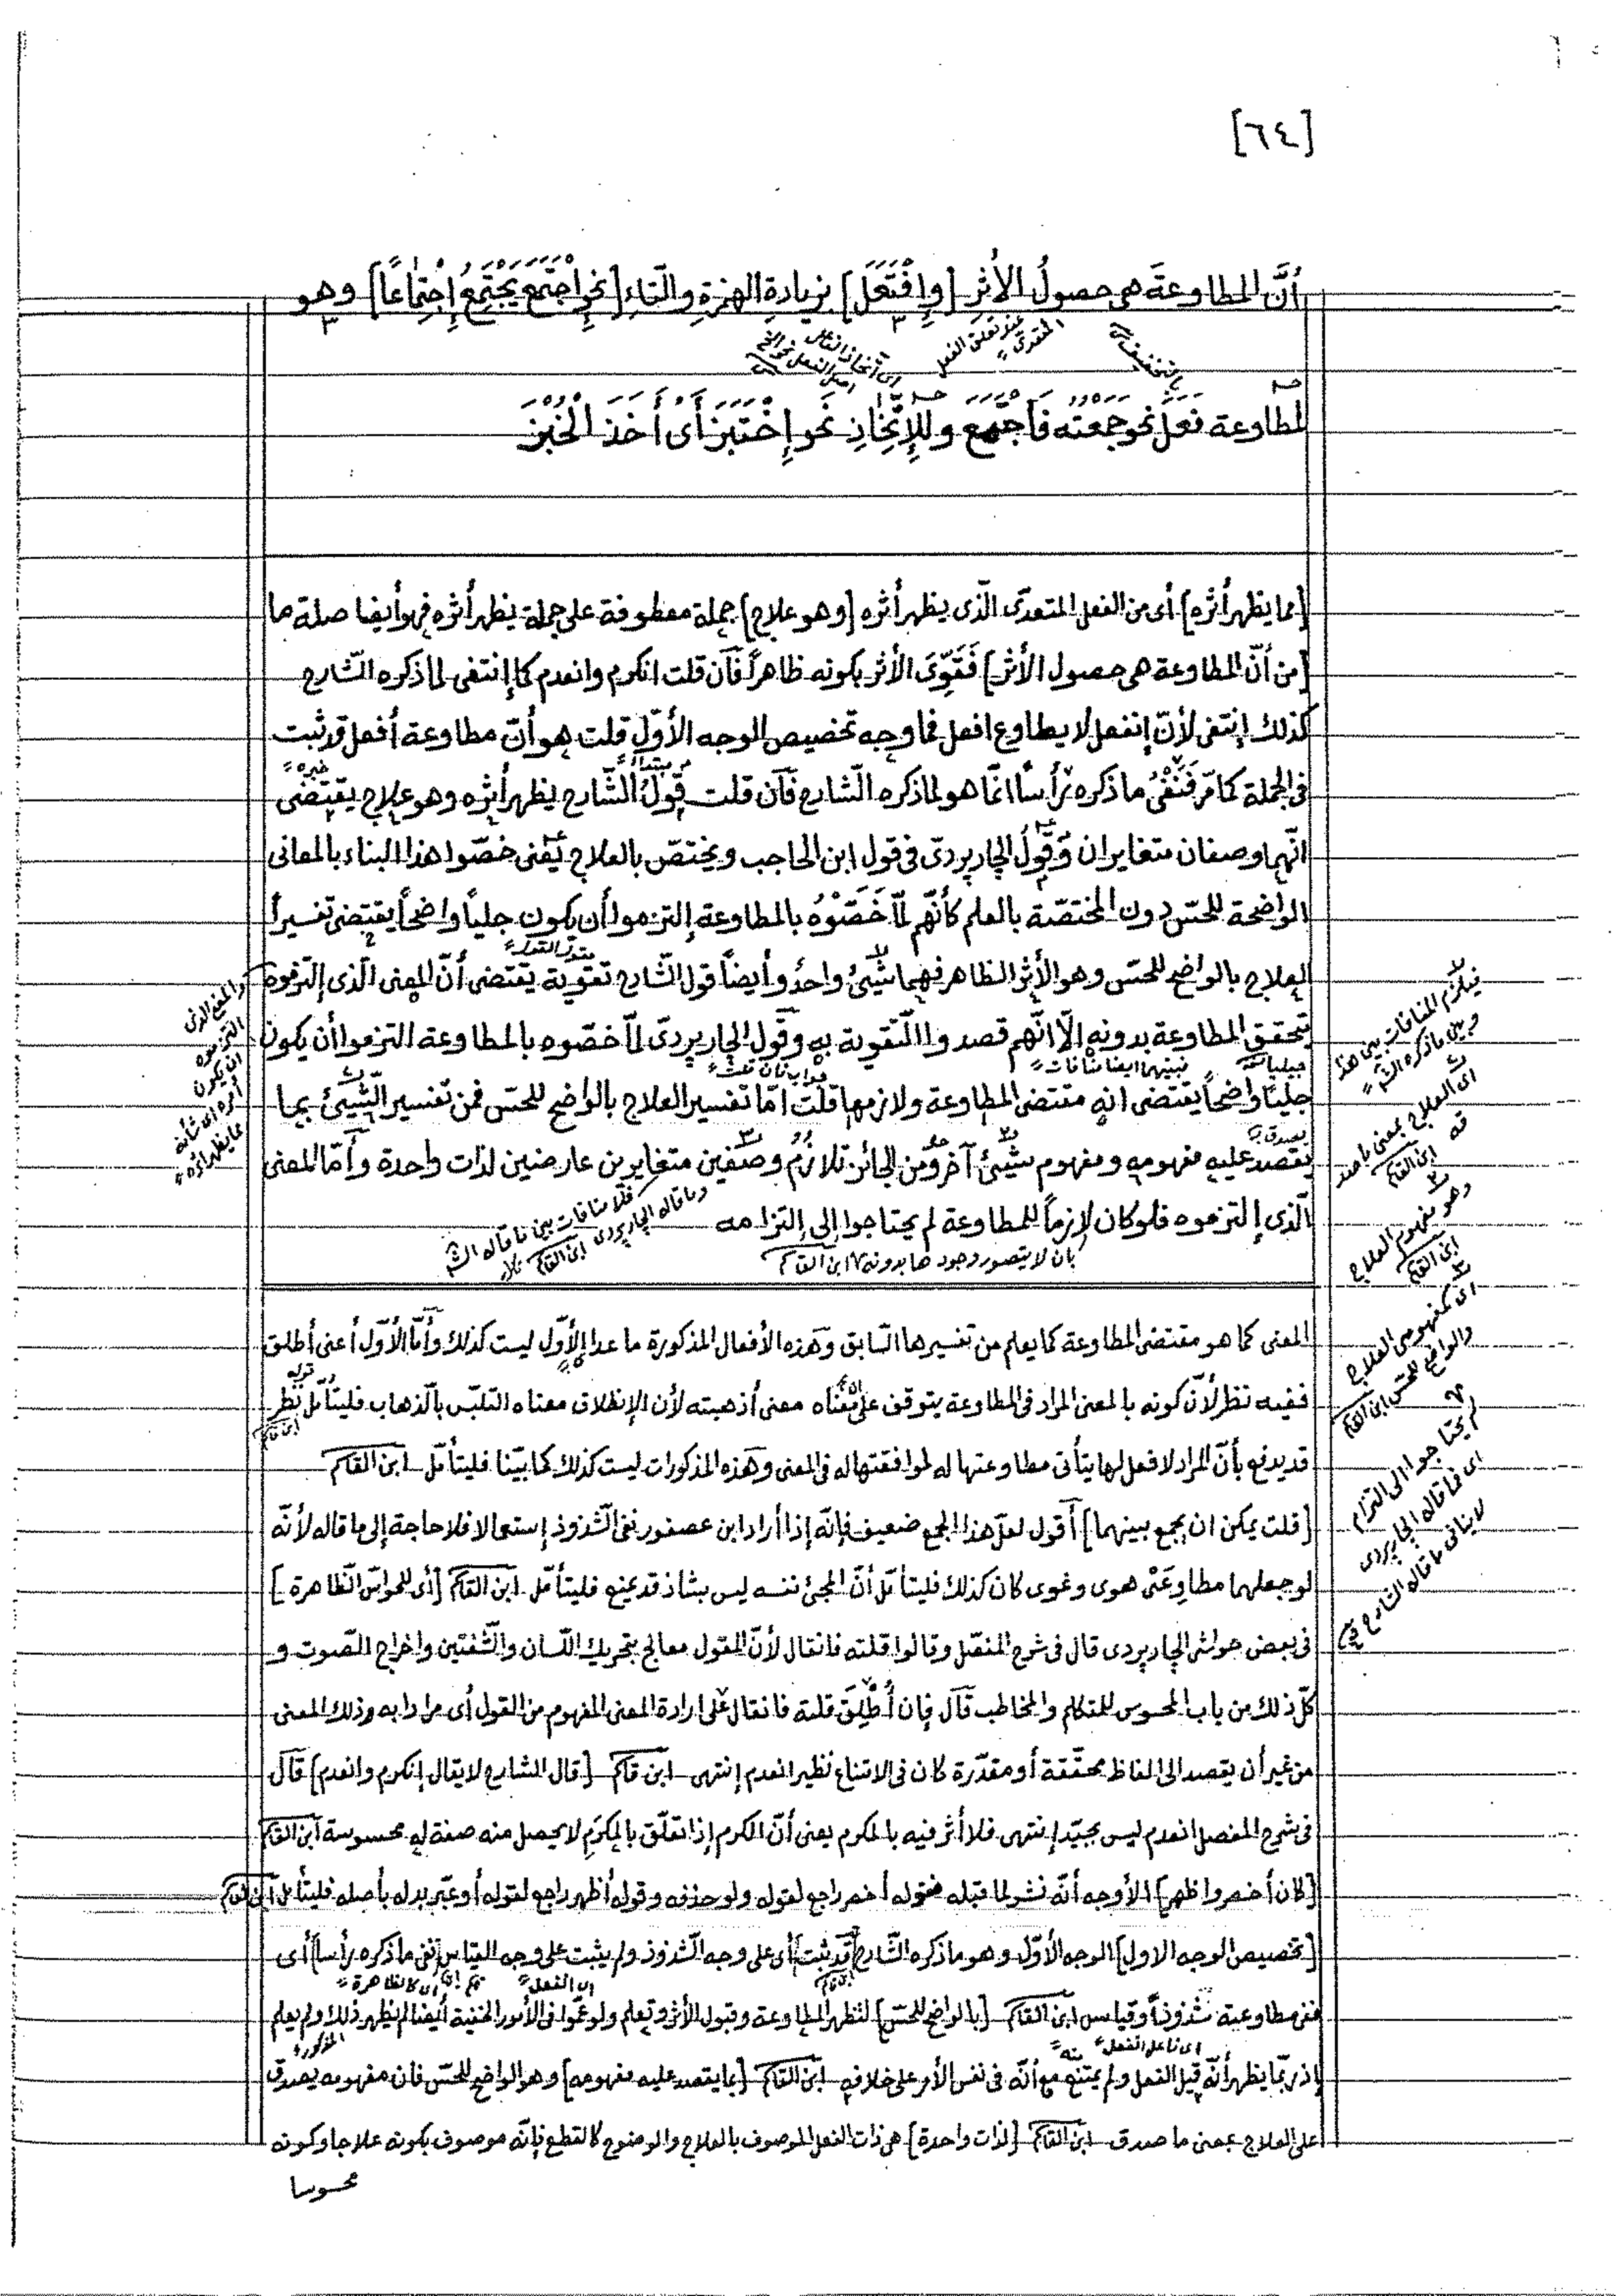 [٦٤]
أنَّ المطاوعةَ هى حصولُ الأثرِ [وإِفْتَعَلَ] بزيادةِ الهمزةِ والتّاءِ [نحوإِجْتَمَعَ يَجْتَمِعُ إِجْتِمٰاعًا] وهو
لمطاوعة فَعَلَ نحوجمعته فَاجْتَمَع وللإِتِّخٰاذِ نَحوإِخْتَبَزَ أَىْ أَخَذَ الْخُبْزَ
[مما يظهر أثره] أى من الفعل المتعدّى الّذى يظهر أثره [وهو علاج] جملة معطوفة على جملة يظهر أثره فهو أيضا صلة ما
[من أنّ المطاوعة هى حصول الأثر] فَقَوِّىَ الأثر بكونه ظاهراً فآن قلت انكرم وانعدم كما إنتفى لما ذكره الشّارح
كذلك إنتفى لأنّ إنفعل لا يطاوع افعل فما وجه تخصيص الوجه الأوّل قلت هو أنّ مطاوعة أفعل قد ثبت
فى الجملة كما مّر فَنَفْىُ ما ذكره رأساً انّما هو لما ذكره الشّارح فآن قلت قولُ الشّارح يظهر أثره وهو علاج يقتضى
انّهما وصفان متغايران وَقَولُ الچاربردىّ فى قول ابن الحاجب ويختصّ بالعلاج يَعْنى خصّوا هذا البناء بالمعانى
الواضحة للحسّ دون المختصّة بالعلم كأنّهم لمّا خَصَّوْهُ بالمطاوعة إلتزموا أن يكون جلياً واضحاً يقتضى تفسيرأ
لعلاج بالواضح للحسّ وهو الأثر الظاهر فهما شيْئ واحدٌ وأيضاً قول الشّارح تقوية يقتضى أنّ المعنى الّذى إلتزموه
يتحقق المطاوعة بدونه إلّا انّهم قصدوا التّقوية به وقَول الچاربردىّ لمّا خصّوه بالمطاوعة التزموا أن يكون
جليّاً واضحاً يقتضى انه مقتضى المطاوعة ولازمها قلت امّا تفسير العلاج بالواضح للحسّ فمن تفسير الشّيئ بما
يقصد عليه مفهومه ومفهوم شيئ آخر ومن الجائز تلازُمُ وصْفين متغايرين عارضين لذات واحدة وأمّا المعنى
الّذى إلتزموه فلو كان لازماً للمطاوعة لم يحتاجوا إلى إلتزامه
بان لا يتصور وجودها بدونه ابن القاسم
المعنى كما هو مقتضى المطاوعة كما يعلم من تفسيرها السّابق وهَذه الأفعال المذكورة ما عدا الأوّل ليست كذلك وأمّا الأوّل أعنى أطلق
ففيه نظر لأنّ كونه بالمعنى المراد فى المطاوعة يتوقف على معناه معنى أذهبته لأن الإنطلاق معناه التلبّس بالّذهاب فليتأمّل نظر
قد يدفع بأنّ المراد لا فعل لها يتأتى مطاوعتها له لموافقتها له فى المعنى وهَذه المذكورات ليست كذلك كما بيّنا فليتأمّل ابن القاسم
[قلت يمكن ان يجمع بينهما] أقول لعلّ هذا الجمع ضعيف فإنّه إذا أراد ابن عصفور نفى الشّذوذ إستعمالا فلا حاجة إلى ما قاله لأنّه
لو جعلهما مطاوِعَىْ هوى وغوى كان كذلك فليتأمّل أنّ المجئ نفسه ليس بشاذ قد يمنع فليتأمّل ابن القاسم [أى للحواسّ الظّاهرة]
فى بعض حواشى الچاربردى قال فى شرح المفصّل وقالوا قلته فانقال لأنّ المقول معالج بتحريك اللّسان والشّفتين واخراج الصّوت و
كلّ ذلك من باب المحسوس للمتكلم والمخاطب قال فإن أُطْلِقَ قلته فانقال على ارادة المعنى المفهوم من القول أى مرادا به وذلك المعنى
من غير أن يقصد الى الفاظ محقّقة أو مقدّرة كان فى الامتناع نظير انعدم إنتهى ابن قاسم [قال الشارح لا يقال إنكرم وانعدم] قال
فى شرح المفصل انعدم ليس بجيّد إنتهى فلا أثر فيه بالمكرم يعنى أنّ الكرم إذا تعلّق بالمكرَم لا يحصل منه صفة له محسوسة ابن القاسم
[لكان أخصر واظهر] الأوجه أنّه نشر لما قبله فقوله أخصر راجع لقوله ولو حذفه وقوله أظهر راجع لقوله أو عبّر بدله بأصله فليتأمل ابن القاسم
[تخصيص الوجه الاول] الوجه الأوّل وهو ما ذكره الشّارح [قد ثبت] أى على وجه الشّذوذ ولم يثبت على وجه القياس [نفى ما ذكره رأساً] أى
نفى مطاوعية شذوذاً وقياس ابن القاسم [بالواضح للحسّ] لتظهر المطاوعة وقبول الأثر وتعلم ولو عمّوا فى الأمور الخفية أيضا لم يظهر ذلك ولم يعلم
إذ ربّما يظهر أنّه قيل الفعل ولم يمتنع مع أنّه فى نفس الأمر على خلافه ابن القاسم [بما يقصد عليه مفهومه] وهو الواضح للحسّ فان مفهومه يصدق
على العلاج بمعنى ما صدق ابن القاسم [لذات واحدة] هى ذات الفعل الموصوف بالعلاج والوضوح كالقطع فإنّه موصوف بكونه علاجا وكونه
محسوسا
فيلزم المنافات بين هذا
وبين ما ذكره الشّ
اى العلاج بمعنى ما صد
قه ابن القاسم
وهو مفهوم العلاج
ابن القاسم
اى مفهومى العلاج
والواضح للحسّ ابن القاسم
لم يحتاجوا الى التزام
اى فما قاله الچاربردى
لا ينافى ما قاله الشارح
والمعنى الذى
التزموه
ان يكون
أمره اى شأنه
مما يظهر اثره